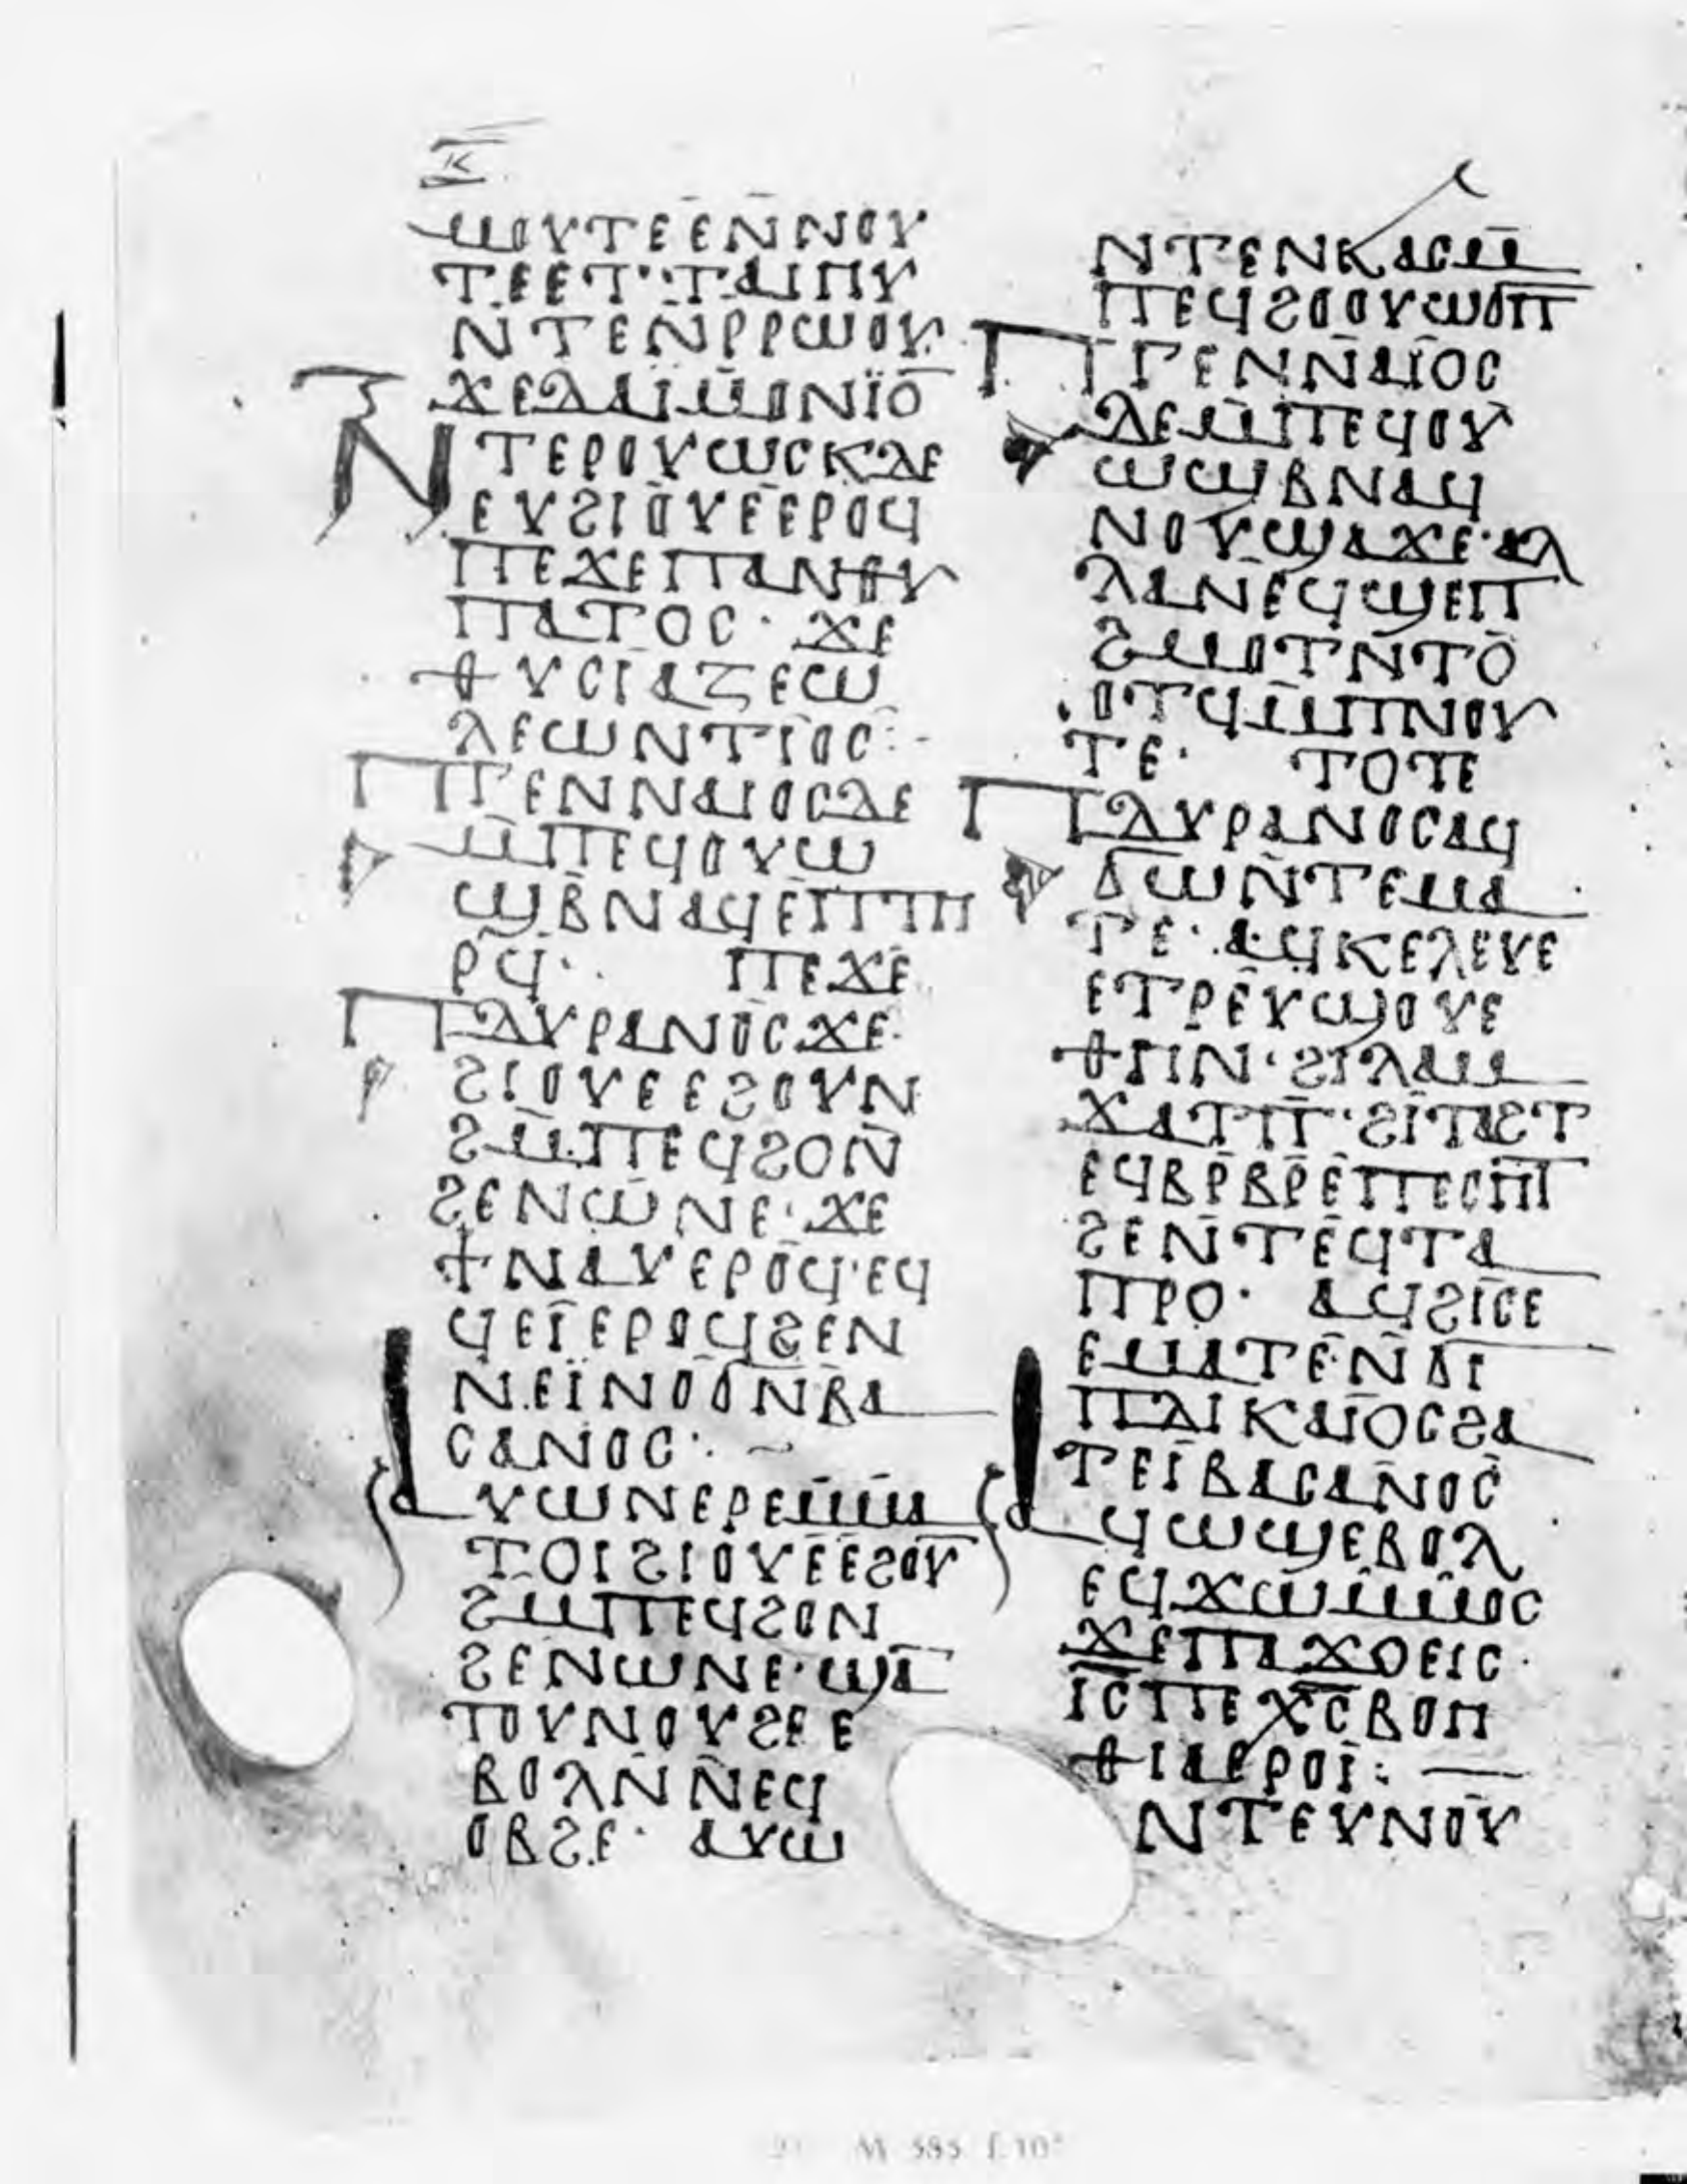 ⲕ̅
ⲙⲟⲩⲧⲉⲉⲛ̄ⲛⲟⲩ
ⲧⲉⲉⲧ·ⲧⲁⲓⲏⲩ
ⲛ̄ⲧⲉⲛⲣ̄ⲣⲱⲟⲩ·
ϫⲉⲇⲁⲓⲙⲟⲛⲓⲟ̅
ⲛⲧⲉⲣⲟⲩⲱⲥⲕⲇⲉ
ⲉⲩϩⲓⲟⲩⲉⲉⲣⲟϥ
ⲡⲉϫⲉⲡⲁⲛⲑⲩ
ⲡⲁⲧⲟⲥ· ϫⲉ
ⲑⲩⲥⲓⲁⲍⲉⲱ
ⲗⲉⲱⲛⲧⲓⲟⲥ:-
ⲡⲅⲉⲛⲛⲁⲓⲟⲥⲇⲉ
ⲙ̄ⲡⲉϥⲟⲩⲱ
ϣⲃ̄ⲛⲁϥⲉⲡⲧⲏ
ⲣϥ̄· ⲡⲉϫⲉ
ⲡⲇⲩⲣⲁⲛⲟⲥϫⲉ·
ϩⲓⲟⲩⲉⲉϩⲟⲩⲛ
ϩⲙ̄ⲡⲉϥϩⲟⲛ̄
ϩⲉⲛⲱⲛⲉ· ϫⲉ
ϯⲛⲁⲩⲉⲣⲟϥ·ⲉϥ
ϥⲉⲓⲉⲣⲟϥϩⲉⲛ
ⲛⲉⲓ̈ⲛⲟϭⲛ̄ⲃⲁ
ⲥⲁⲛⲟⲥ·:~
ⲁⲩⲱⲛⲉⲣⲉⲙ̄ⲙⲁ
ⲧⲟⲓϩⲓⲟⲩⲉⲉϩⲟⲩ̅
ϩⲙⲡⲉϥϩⲟⲛ
ϩⲉⲛⲱⲛⲉ·ϣⲁ̅
ⲧⲟⲩⲛⲟⲩϩⲉⲉ
ⲃⲟⲗⲛ̄ⲛ̄ⲉϥ
ⲟⲃϩⲉ· ⲁⲩⲱ
ⲛⲧⲉⲛⲕⲁⲥⲙ̄
ⲡⲉϥϩⲟⲟⲩⲱϭⲡ̅
ⲡⲅⲉⲛⲛⲁⲓⲟⲥ
ⲇⲉⲙ̄ⲡⲉϥⲟⲩ
ⲱϣⲃⲛⲁϥ
ⲛⲟⲩϣⲁϫⲉ·ⲁⲗ
ⲗⲁⲛⲉϥϣⲉⲡ
ϩⲙⲟⲧⲛ̄ⲧⲟ̄
ⲟⲧϥⲙ̄ⲡⲛⲟⲩ
ⲧⲉ· ⲧⲟⲧⲉ
ⲡⲇⲩⲣⲁⲛⲟⲥⲁϥ
ϭⲱⲛ̄ⲧⲉⲙⲁ
ⲧⲉ·ⲁϥⲕⲉⲗⲉⲩⲉ
ⲉⲧⲣⲉⲩϣⲟⲩⲉ
ⲑⲓⲏⲛ·ϩⲓⲗⲁⲙ
ϫⲁⲧⲡ̄·ϩⲓⲧⲁϩⲧ
ⲉϥⲃⲣ̄ⲃⲣ̄ⲉⲡⲉⲥⲏⲧ
ϩⲉⲛ̄ⲧⲉϥⲧⲁ
ⲡⲣⲟ· ⲁϥϩⲓⲥⲉ
ⲉⲙⲁⲧⲉⲛ̄ϭⲓ
ⲡⲇⲓⲕⲁⲓⲟⲥϩⲁ
ⲧⲉⲓⲃⲁⲥⲁⲛⲟⲥ
ⲁϥⲱϣⲉⲃⲟⲗ
ⲉϥϫⲱⲙ̄ⲙⲟⲥ
ϫⲉⲡⲁϫⲟⲉⲓⲥ·
ⲓ̅ⲥ̅ⲡⲉⲭ̅ⲥ̅ⲃⲟⲏ
ⲑⲓⲁⲉⲣⲟⲓ̈:—
ⲛⲧⲉⲩⲛⲟⲩ